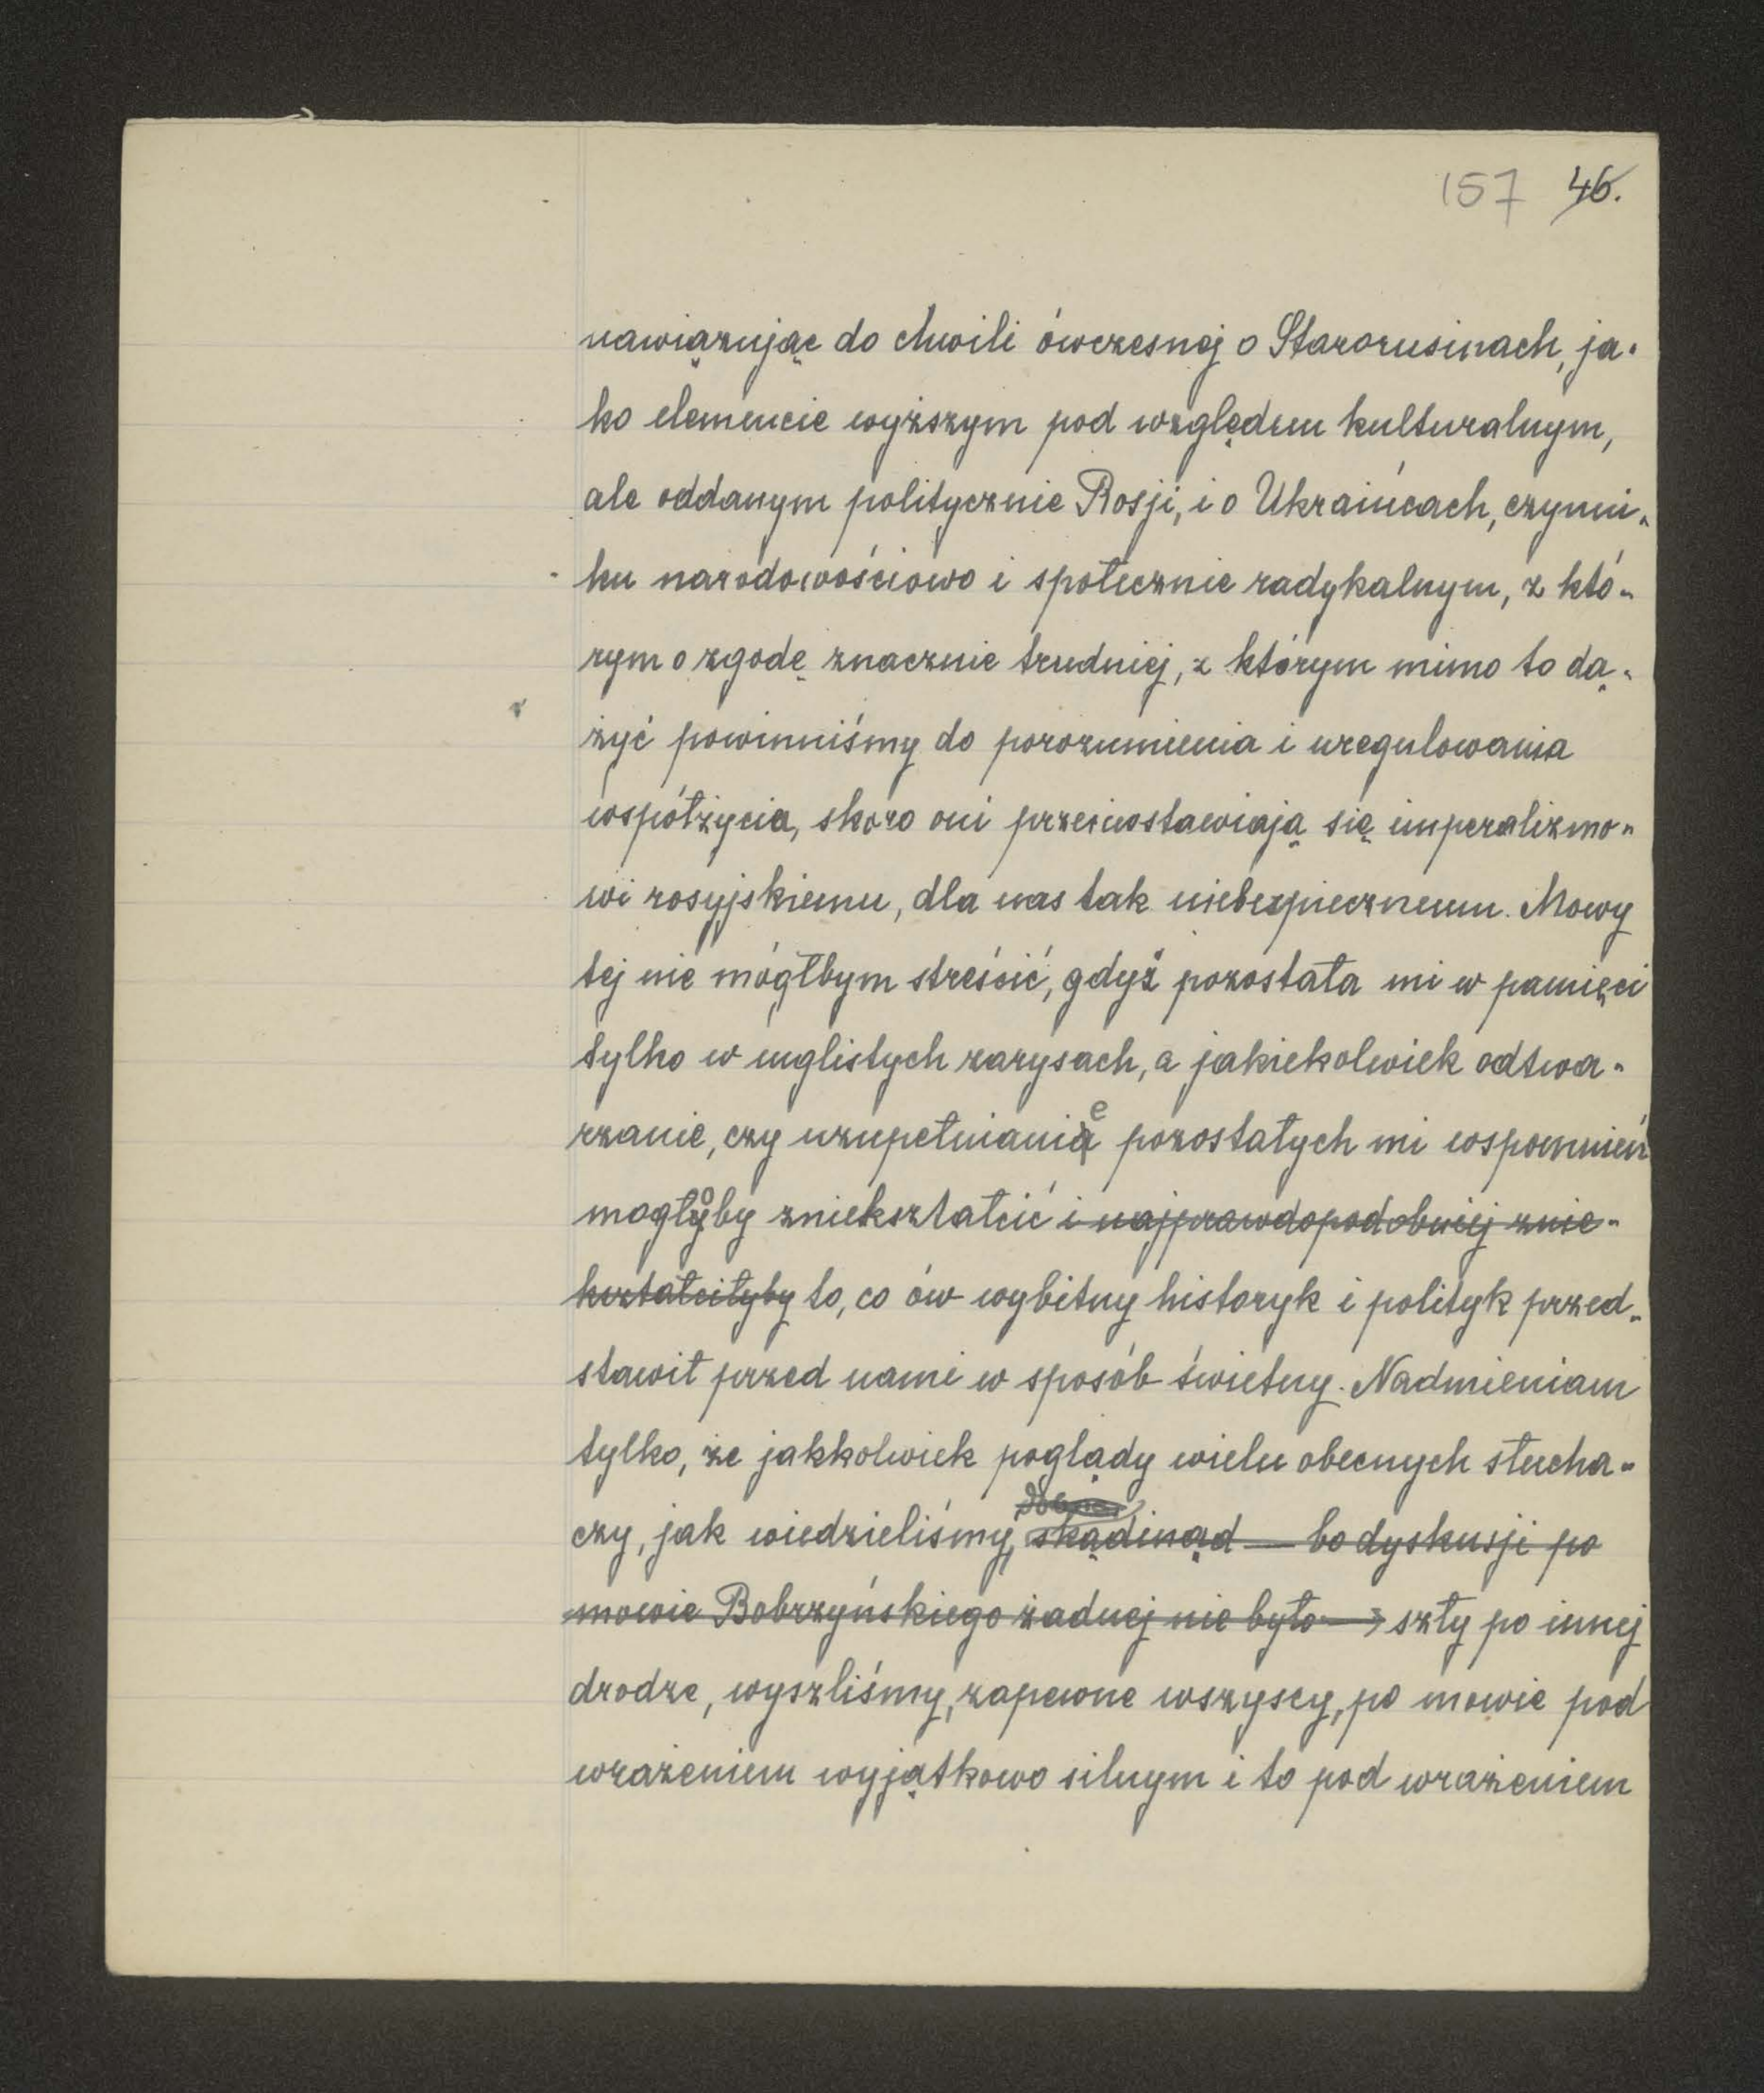 157 46.
nawiązując do chwili ówczesnej o Starorusinach, ja-
ko elemencie wyższym pod względem kulturalnym,
ale oddanym politycznie Rosji, i o Ukraińcach, czynni-
ku narodowościowo i społecznie radykalnym, z któ-
rym o zgodę znacznie trudniej, z którym mimo to dą-
żyć powinniśmy do porozumienia i uregulowania
współżycia, skoro oni przeciwstawiają się imperalizmo-
wi rosyjskiemu, dla nas tak niebezpiecznemu. Mowy
tej nie mógłbym streścić, gdyż pozostała mi w pamięci
tylko w mglistych zarysach, a jakiekolwiek odtwa-
rzanie, czy uzupełnianie pozostałych mi wspomnień
mogłoby zniekształcić i najprawdopodobniej znie-
kształciłyby to, co ów wybitny historyk i polityk przed-
stawił przed nami w sposób świetny. Nadmieniam
tylko, że jakkolwiek poglądy wielu obecnych słucha-
czy, jak wiedzieliśmy, skądinąd — bo dyskusji po
mowie Bobrzyńskiego żadnej nie było — szły po innej
drodze, wyszliśmy, zapewne wszyscy, po mowie pod
wrażeniem wyjątkowo silnym i to pod wrażeniem